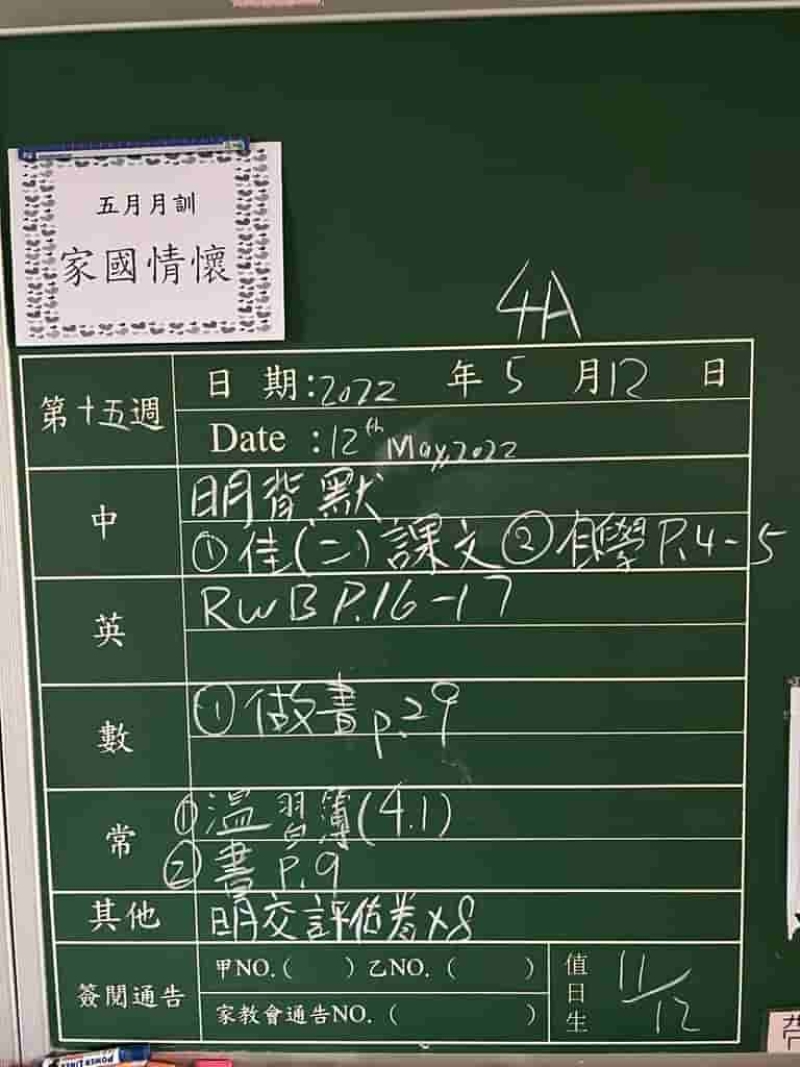 五月月訓
家國情懷
4A
第十五週
日 期:2022 年 5 月 12 日
Date :12th May, 2022
中
明背默
①佳(二)課文②自學P.4-5
英
RWB P.16-17
數
①做書p.29
常
①溫習簿(4.1)
②書P.9
其他
明交評估卷x8
簽閱通告
甲NO.( )乙NO.( )
家教會通告NO.( )
值日生
11/12